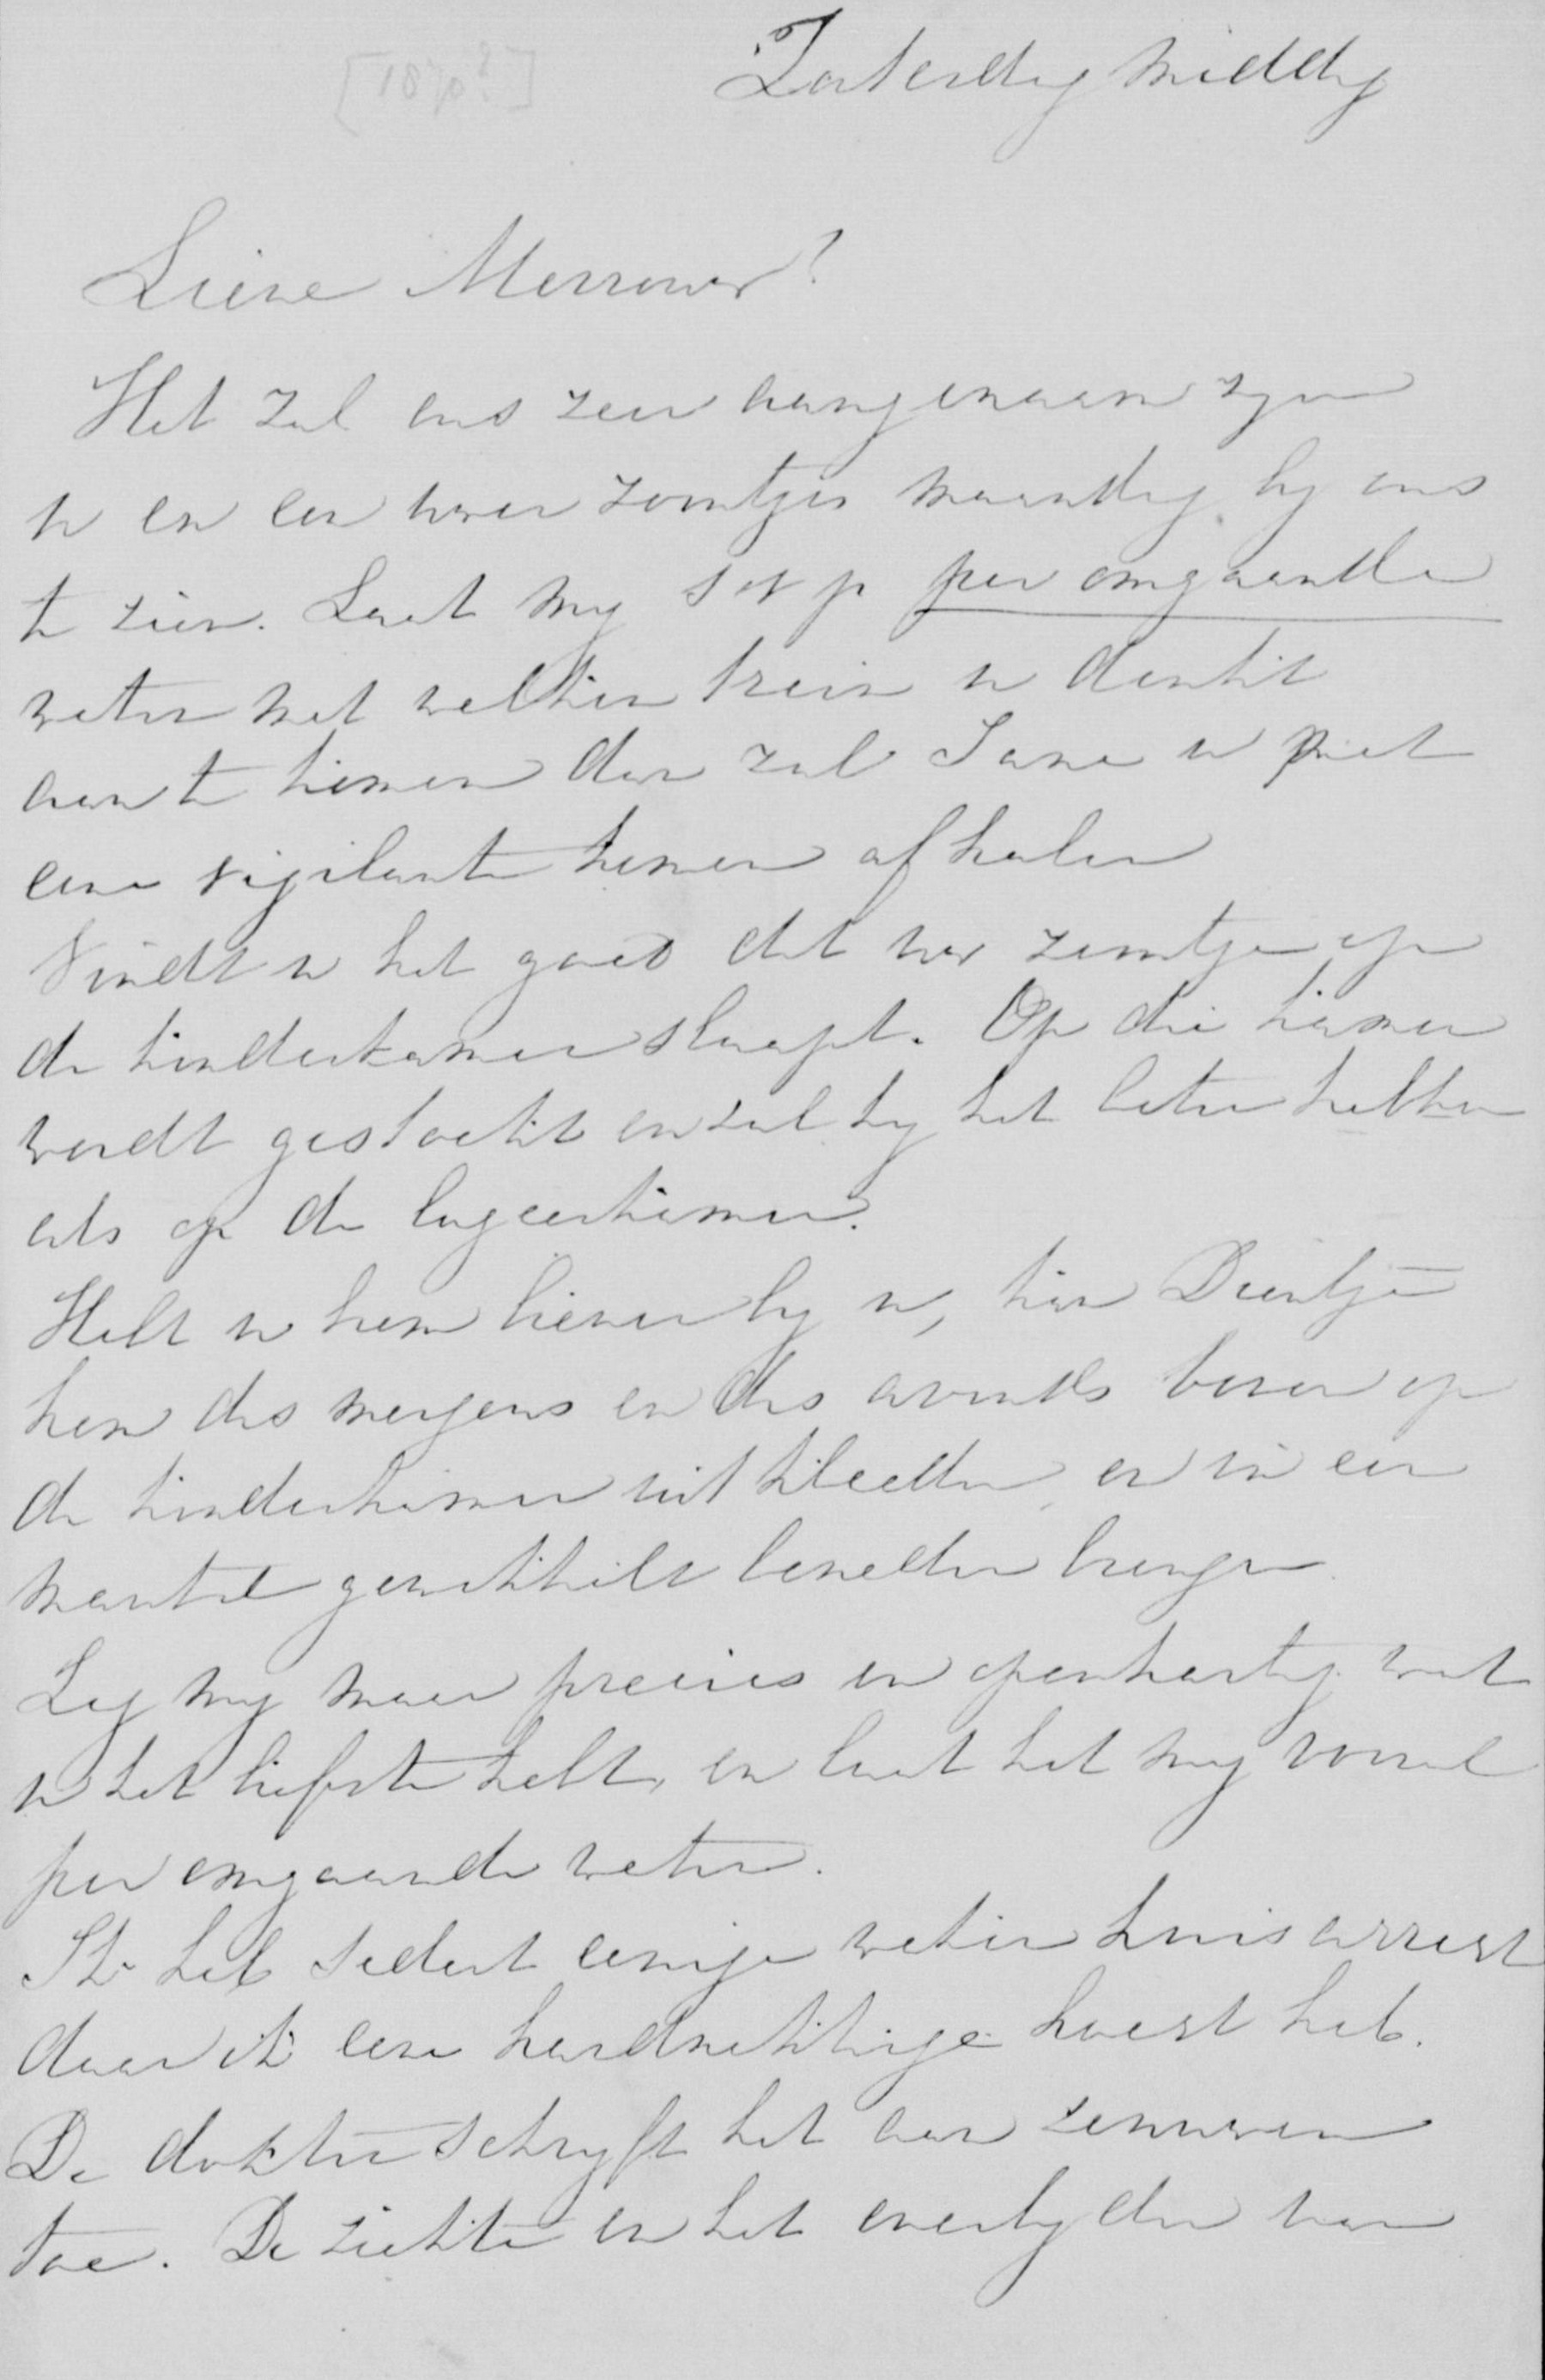 [1870?]
Zaterdag middag
Lieve Mevrouw!
Het zal ons zeer aangenaam zyn
u en een uwer zoontjes maandag by ons
te zien. Laat my s v p per omgaande
weten met welken trein u denkt
aan te komen dan zal Jane u met
eene vigilante komen afhalen
Vindt u het goed dat uw zoontje op
de kinderkamer slaapt. Op die kamer
wordt gestookt en zal hy het beter hebben
als op de logeerkamer.
Hebt u hem liever by u, kan Dientje
hem des morgens en des avonds boven op
de kinderkamer uitkleeden en in een
mantel gewikkeld beneden brengen.
Zeg my maar precies en openhartig wat
u het liefste hebt, en laat het my vooral
per omgaande weten.
Ik heb sedert eenige weken huisarrest
daar ik eene hardnekkige hoest heb.
De dokter schryft het aan zenuwen
toe. De ziekte en het overlyden van